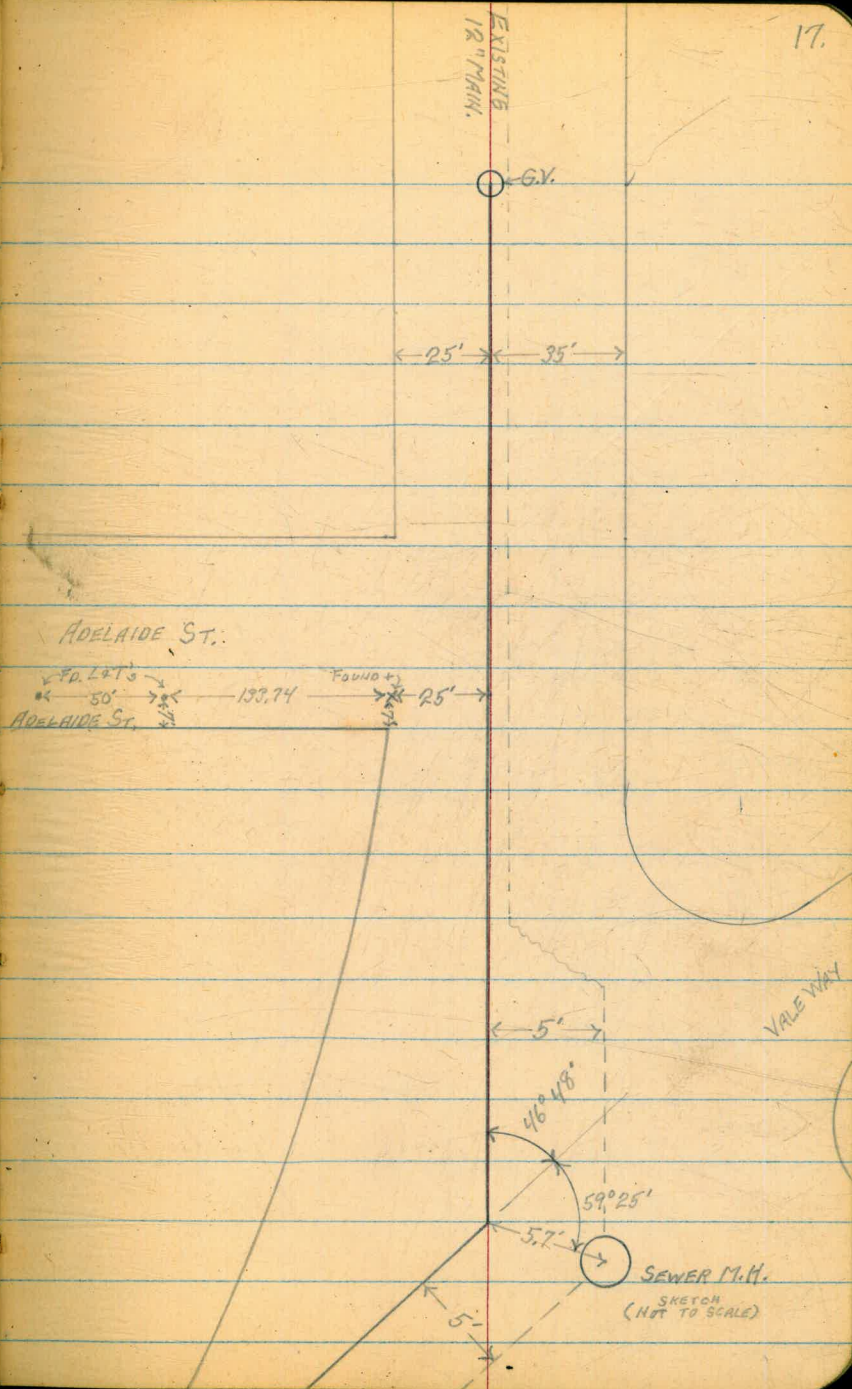 17.
EXISTING
12" MAIN.
G.V.
25' 35'
ADELAIDE ST.
FD. L&T's FOUND
50' 193.74 25'
ADELAIDE ST.
VALE WAY
5'
46° 48'
59° 25'
5.7'
SEWER M.H.
SKETCH
(NOT TO SCALE)
5'